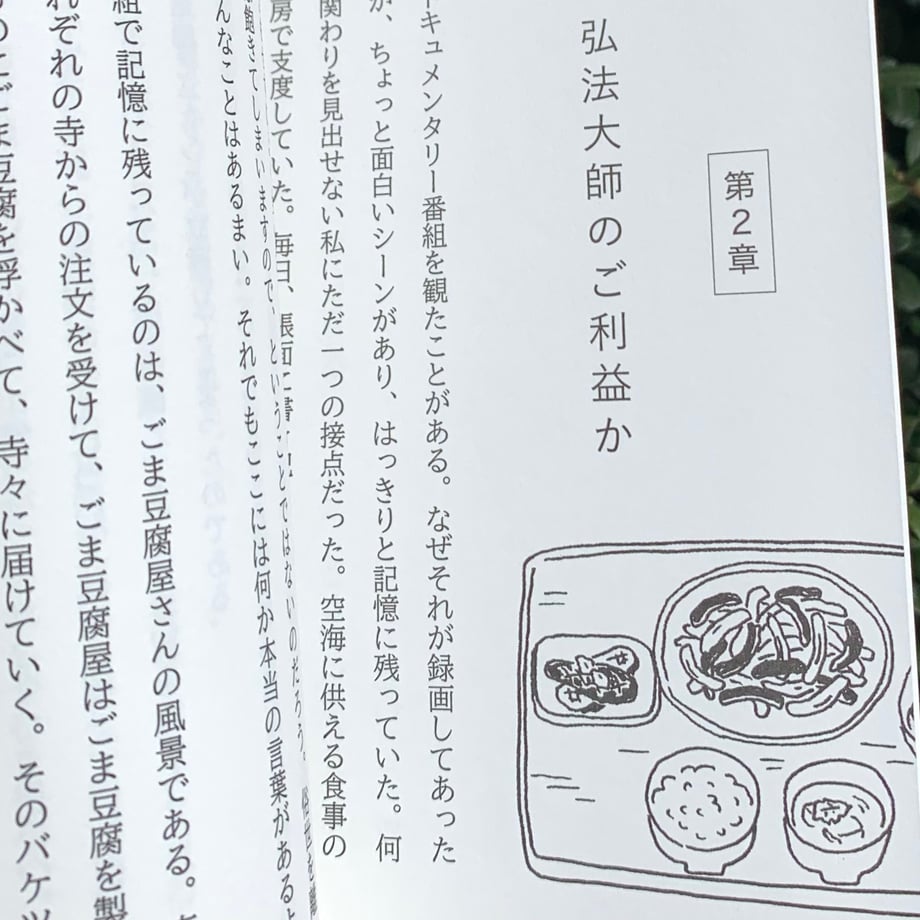 第2章
弘法大師のご利益か
キュメンタリー番組を観たことがある。なぜそれが録画してあった
が、ちょっと面白いシーンがあり、はっきりと記憶に残っていた。何
関わりを見出せない私にただ一つの接点だった。空海に供える食事の
房で支度していた。毎日、帳面に書
飽きてしまいますので、ということではないのだろう。
んなことはあるまい。それでもここには何か本当の言葉がある
組で記憶に残っているのは、ごま豆腐屋さんの風景である。
れぞれの寺からの注文を受けて、ごま豆腐屋はごま豆腐を製
のにごま豆腐を浮かべて、寺々に届けていく。そのバケツ